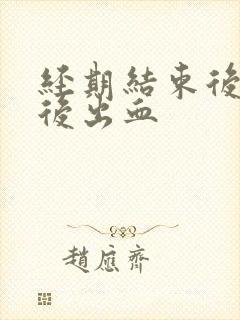 經期結束後
後出血
趙應齊